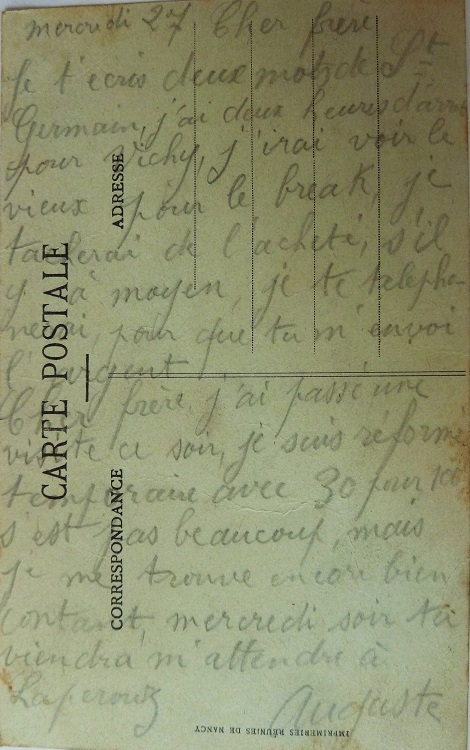 mercredi 27 Cher frère
Je t'ecris deux mots de St
Germain, j'ai deux heures d'arrêt
pour Vichy, j'irai voir le
vieux pour le break, je
tacherai de l'acheté, s'il
y à moyen, je te telepho-
nerai, pour que tu m'envoi
l'argent
Cher frère, j'ai passé une
visite ce soir, je suis réformé
temporaire avec 30 pour 100
s'est pas beaucoup, mais
je me trouve encore bien
contant, mercredi soir tu
viendra m'attendre à
Laperouz Auguste
CARTE POSTALE
ADRESSE
CORRESPONDANCE
IMPRIMERIES RÉUNIES DE NANCY